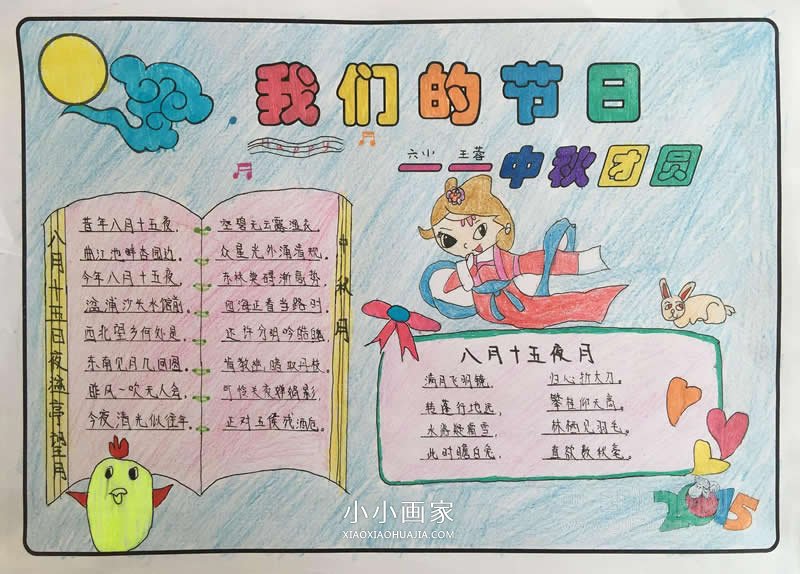 我们的节日
六小 王蓉
中秋团圆
八月十五日夜湓亭望月
昔年八月十五夜,
曲江池畔杏园边。
今年八月十五夜,
湓浦沙头水馆前。
西北望乡何处是,
东南见月几回圆。
昨风一吹无人会,
今夜清光似往年。
中秋月
空碧无云露湿衣,
众星光外涌清规。
东林莫碍渐高势,
四海正看当路时。
还许分明吟皓魄
肯教幽暗取丹枝。
可怜关夜婵娟影,
正对五侯残酒卮。
八月十五夜月
满月飞明镜, 归心折大刀。
转蓬行地远, 攀桂仰天高。
水路疑霜雪, 林栖见羽毛。
此时瞻白兔, 直欲数秋毫。
2015
小小画家
XIAOXIAOHUAJIA.COM